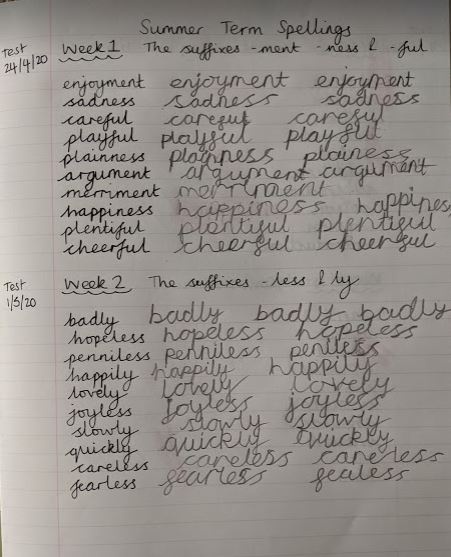 Summer Term Spellings
Test Week 1 The suffixes -ment -ness & -ful
24/4/20
enjoyment enjoyment enjoyment
sadness sadness sadness
careful careful careful
playful playful playful
plainness plainness plainess
argument argument argument
merriment merriment
happiness happiness happiness
plentiful plentiful plentiful
cheerful cheerful cheerful
Test Week 2 The suffixes -less & ly
1/5/20
badly badly badly badly
hopeless hopeless hopeless
penniless penniless peniless
happily happily happily
lovely Lovely Lovely
joyless Joyless joyless
slowly slowly slowly
quickly quickly Quickly
careless careless careless
fearless fearless fealess